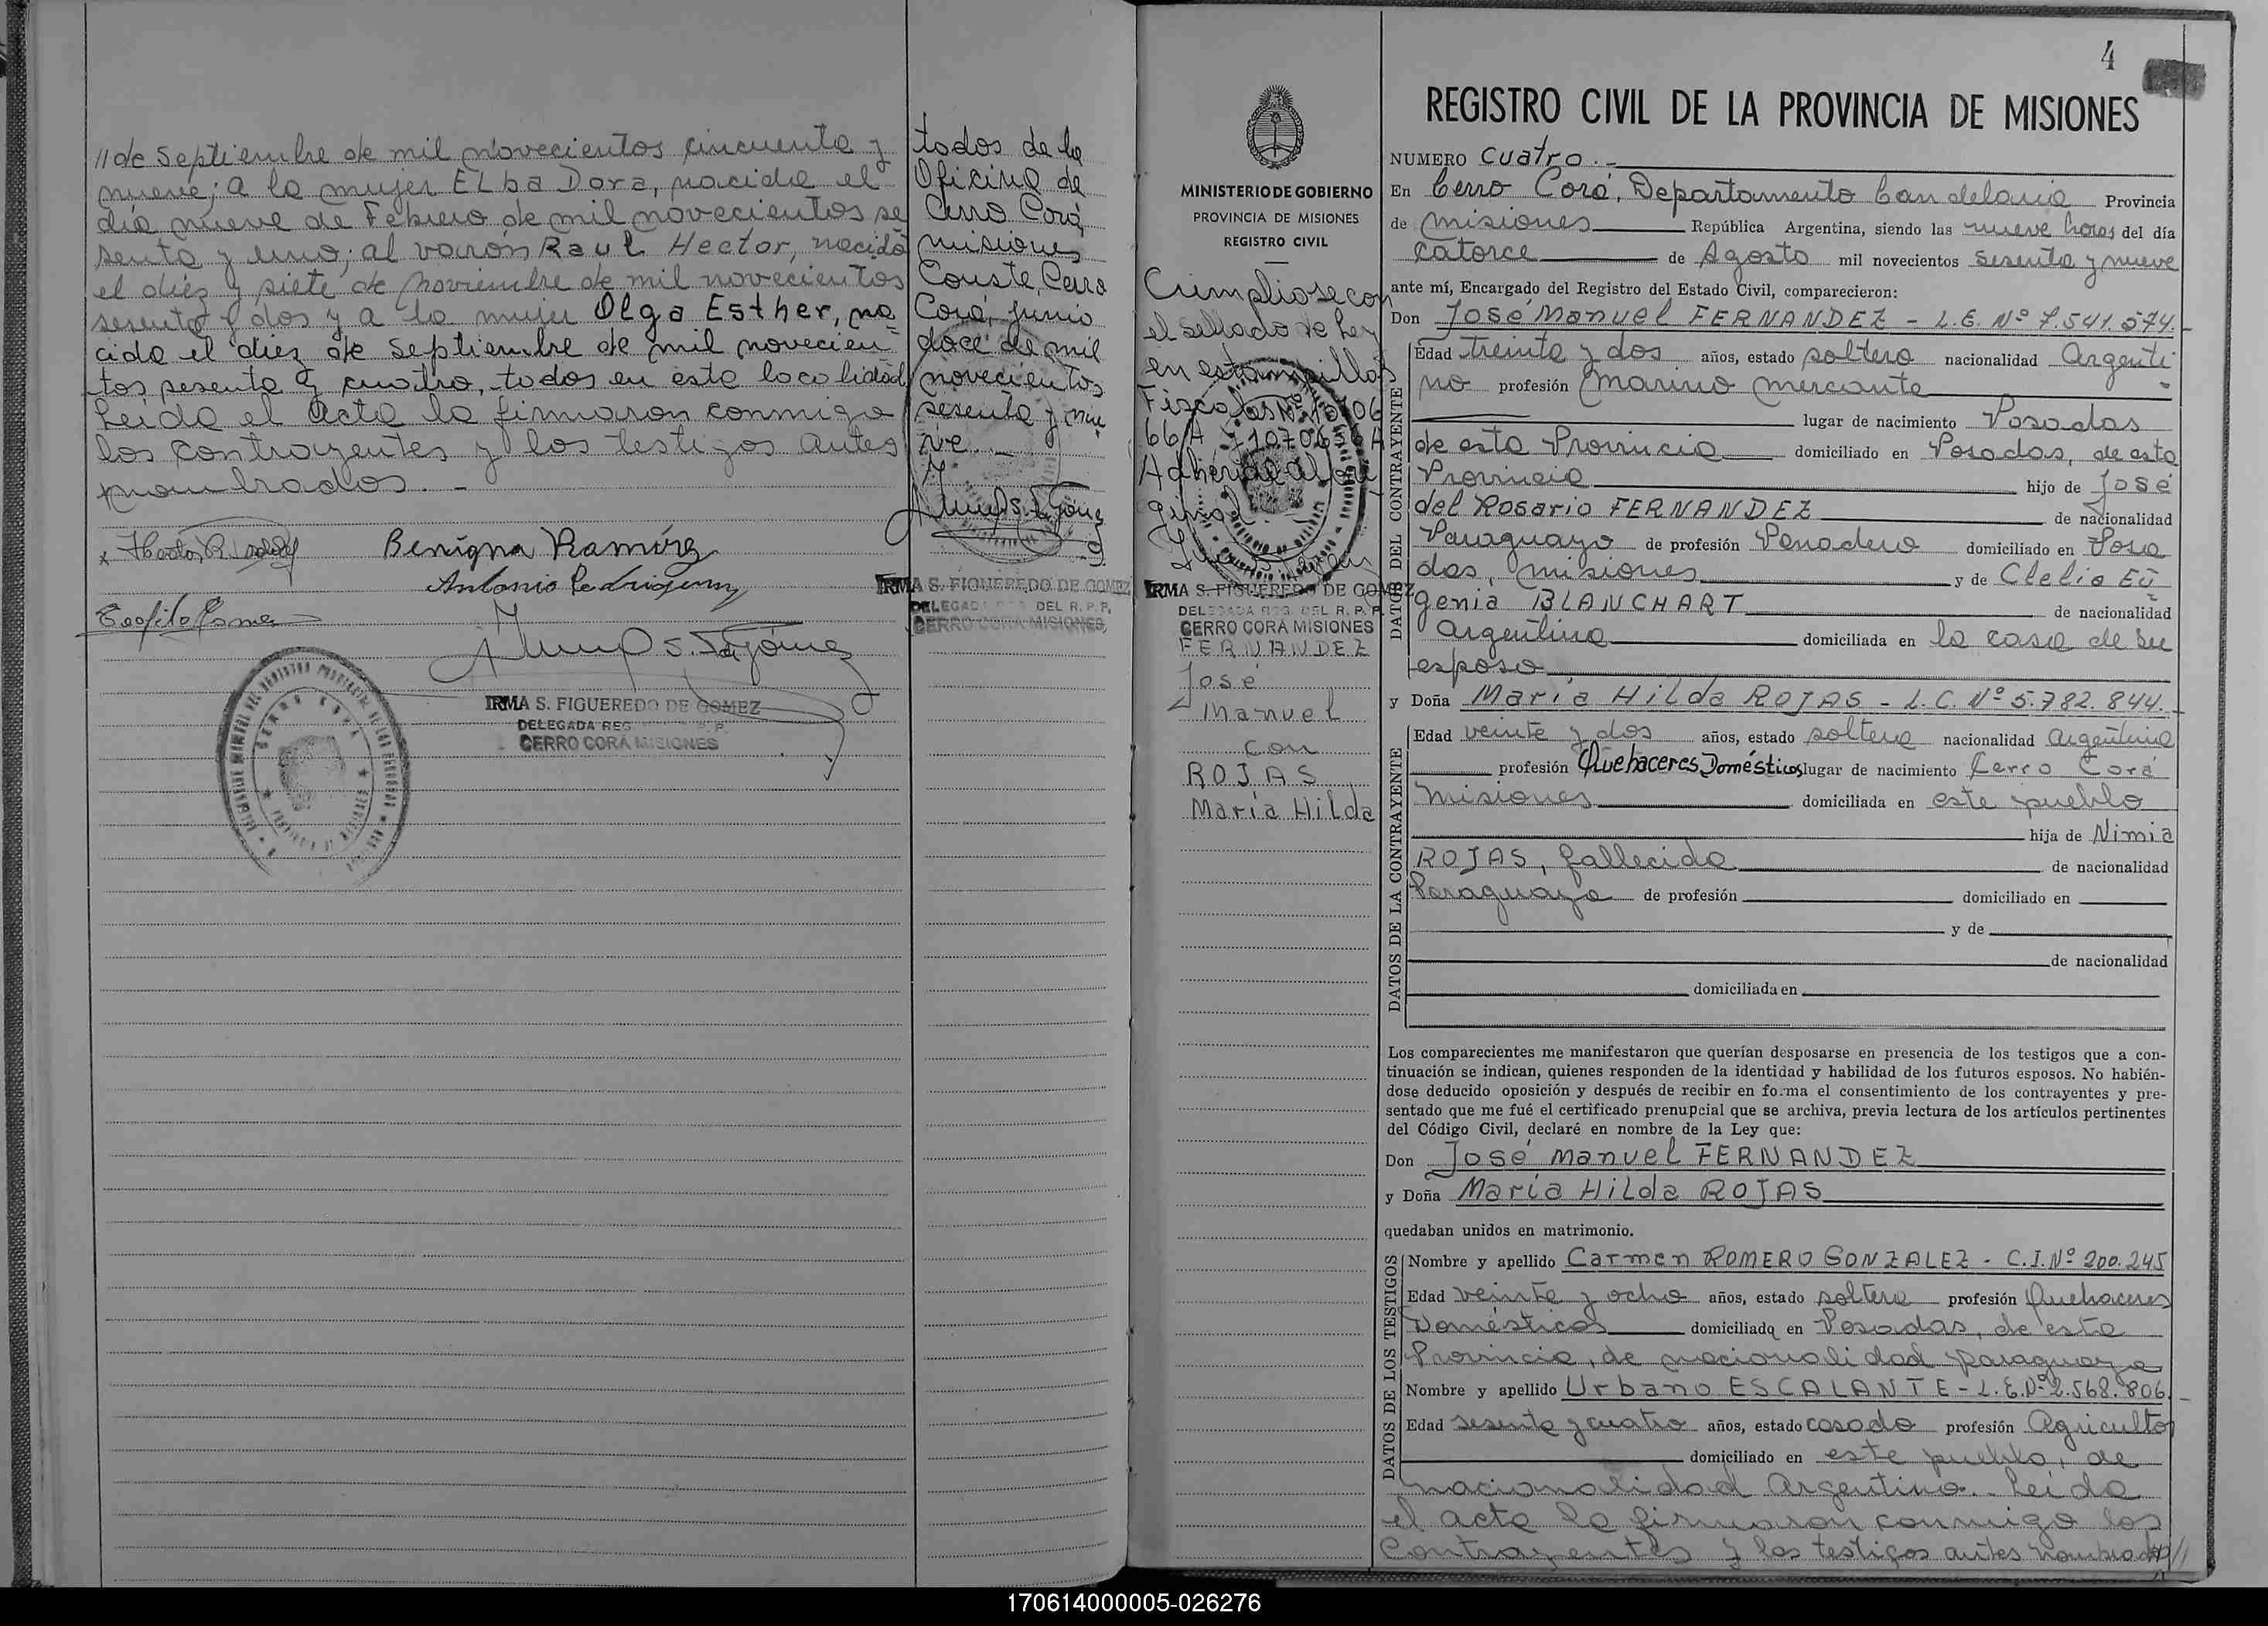 // de Septiembre de mil novecientos cincuenta y
nueve; a la mujer ELba Dora, nacida el
día nueve de Febrero de mil novecientos se
senta y uno; al varón Raul Hector, nacido
el diez y siete de Noviembre de mil novecientos
sesenta y dos y a la mujer Olga Esther, na
cida el diez de Septiembre de mil novecien-
tos sesenta y cuatro, todos en esta localidad
Leida el acta la firmaron conmigo
los contrayentes y los testigos antes
nombrados.-
Benigna Ramírez
IRMA S. FIGUEREDO DE GOMEZ
DELEGADA REG. P.
CERRO CORÁ MISIONES
todos de la
Oficina de
Cerro Corá
Misiones
Conste, Cerro
Corá, Junio
doce de mil
novecientos
sesenta y nue
ve.-
IRMA S. FIGUEREDO DE GOMEZ
DELEGADA DEL R. P. P.
CERRO CORA MISIONES
4
REGISTRO CIVIL DE LA PROVINCIA DE MISIONES
MINISTERIO DE GOBIERNO
PROVINCIA DE MISIONES
REGISTRO CIVIL
Cumpliose con
el sellado de Ley
en estampillas
Fiscales
Adherida al ori
ginal
IRMA S. FIGUEREDO DE GOMEZ
DELEGADA REG. DEL R. P. P.
CERRO CORÁ MISIONES
FERNANDEZ
José
Manuel
con
ROJAS
María Hilda
NUMERO cuatro.-
En Cerro Corá, Departamento Candelaria Provincia
de Misiones República Argentina, siendo las nueve horas del día
catorce de Agosto mil novecientos sesenta y nueve
ante mí, Encargado del Registro del Estado Civil, comparecieron:
Don José Manuel FERNANDEZ - L.E. Nº 7.541.574.-
DATOS DEL CONTRAYENTE
Edad treinta y dos años, estado soltero nacionalidad Argenti
no profesión Marino mercante
lugar de nacimiento Posadas
de esta Provincia domiciliado en Posadas, de esta
Provincia hijo de José
del Rosario FERNANDEZ de nacionalidad
Paraguayo de profesión Panadero domiciliado en Posa
das, Misiones y de Clelia Eu
genia BLANCHART de nacionalidad
Argentina domiciliada en la casa de su
esposo
y Doña María Hilda ROJAS - L.C. Nº 5.782.844.-
DATOS DE LA CONTRAYENTE
Edad veinte y dos años, estado soltera nacionalidad Argentina
profesión Quehaceres Domésticos lugar de nacimiento Cerro Corá
Misiones domiciliada en este pueblo
hija de Nimia
ROJAS, fallecida de nacionalidad
Paraguaya de profesión domiciliado en
y de
de nacionalidad
domiciliada en
Los comparecientes me manifestaron que querían desposarse en presencia de los testigos que a con-
tinuación se indican, quienes responden de la identidad y habilidad de los futuros esposos. No habién-
dose deducido oposición y después de recibir en forma el consentimiento de los contrayentes y pre-
sentado que me fué el certificado prenupcial que se archiva, previa lectura de los artículos pertinentes
del Código Civil, declaré en nombre de la Ley que:
Don José Manuel FERNANDEZ
y Doña María Hilda ROJAS
quedaban unidos en matrimonio.
DATOS DE LOS TESTIGOS
Nombre y apellido Carmen ROMERO GONZALEZ - C.I. Nº 200.245
Edad veinte y ocho años, estado soltera profesión Quehaceres
Domésticos domiciliada en Posadas, de esta
Provincia, de nacionalidad paraguaya
Nombre y apellido Urbano ESCALANTE - L.E. Nº 2.568.806.-
Edad sesenta y cuatro años, estado casado profesión Agricultor
domiciliado en este pueblo, de
nacionalidad Argentino.- Leida
el acta la firmaron conmigo los
Contrayentes y los testigos antes nombrados //
170614000005-026276